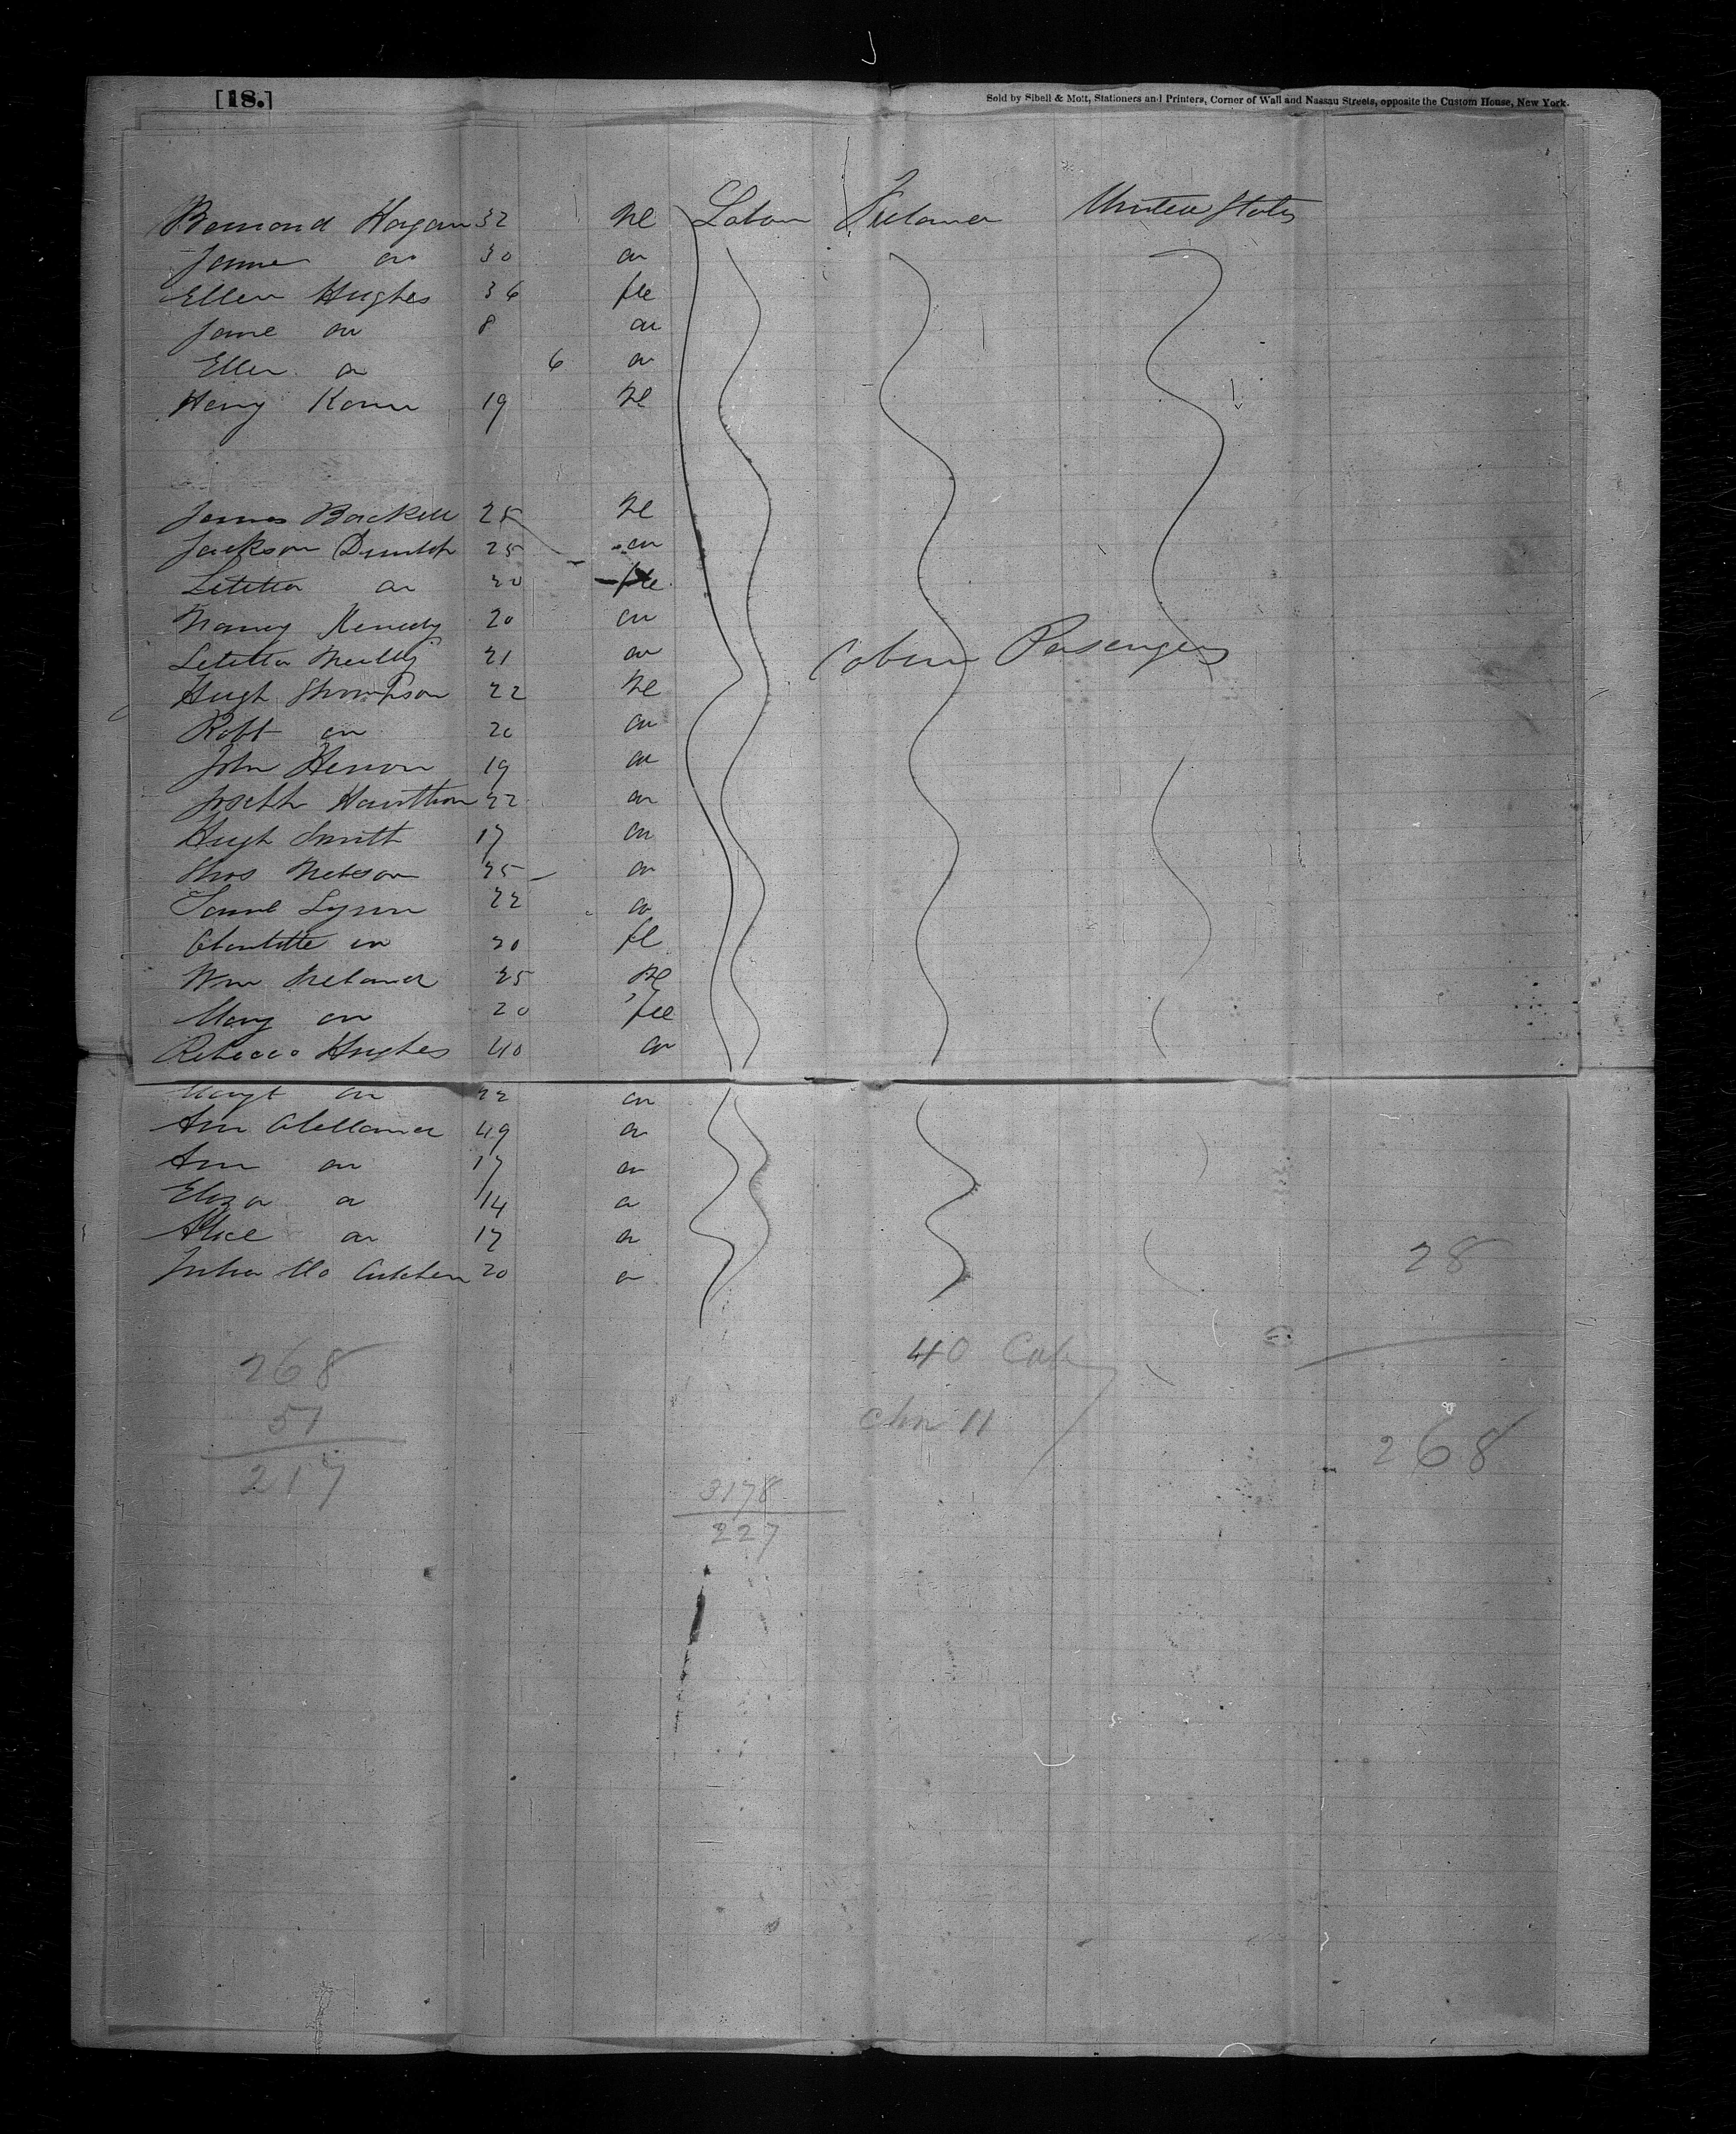 [18.]
Sold by Sibell & Mott, Stationers and Printers, Corner of Wall and Nassau Streets, opposite the Custom House, New York.
Hagan 32 Me Labor Ireland United States
30 do
Ellen Hughes 36 fle
Jane do 8 do
Ellen do 6 do
Henry 19 Me
James 25 Me
Jackson Dunlop 25 do
Letitia do 20 fle
Nancy Kenedy 20 do
Cabin Passengers
Letitia 21 do
Hugh Thompson 22 Me
Robt do 20 do
John Herron 19 do
Joseph Hawthorn 22 do
Hugh Smith 17 do
Thos 25 do
Saml Lynn 22 do
Charlotte do 20 fle
Wm Ireland 25 Me
Mary do 20 fle
Rebecca Hughes 40 do
Margt do 22 do
Ann 49 do
Ann do 17 do
Eliza do 14 do
Alice do 17 do
Julia Mc 20 do
28
268
51
217
40 Cab
11
268
3178
227